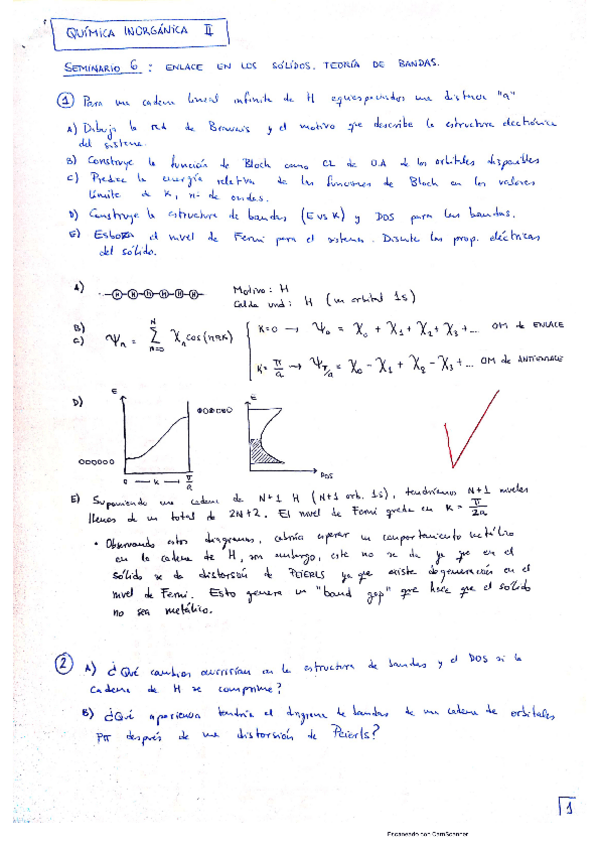 QUÍMICA INORGÁNICA II
SEMINARIO 6 : ENLACE EN LOS SÓLIDOS. TEORÍA DE BANDAS.
① Para una cadena lineal infinita de H equiespaciados una distancia "a"
A) Dibuja la red de Bravais y el motivo que describe la estructura electrónica
del sistema.
B) Construye la función de Bloch como CL de O.A de los orbitales disponibles
C) Predice la energía relativa de las funciones de Bloch en los valores
límite de K, nº de ondas.
D) Construye la estructura de bandas (E vs K) y DOS para las bandas.
E) Esboza el nivel de Fermi para el sistema. Discute las prop. eléctricas
del sólido.
A) H H H H H H Motivo: H
Celda unid: H (un orbital 1s)
B)
C) Ψn = Σ Xn cos(nak) N n=0
K=0 → Ψ0 = X0 + X1 + X2 + X3 + ... OM de ENLACE
K= π/a → Ψπ/a = X0 - X1 + X2 - X3 + ... OM de ANTIENLACE
D) E E
0 — K — π/a DOS
E) Suponiendo una cadena de N+1 H (N+1 orb. 1s), tendríamos N+1 niveles
llenos de un total de 2N+2. El nivel de Fermi queda en K = π/2a
• Observando estos diagramas, cabría esperar un comportamiento metálico
en la cadena de H, sin embargo, este no se da ya que en el
sólido se da distorsión de PEIERLS ya que existe degeneración en el
nivel de Fermi. Esto genera un "band gap" que hace que el sólido
no sea metálico.
② A) ¿Qué cambios ocurrirían en la estructura de bandas y el DOS si la
cadena de H se comprime?
B) ¿Qué apariencia tendría el diagrama de bandas de una cadena de orbitales
después de una distorsión de Peierls?
1
Escaneado con CamScanner